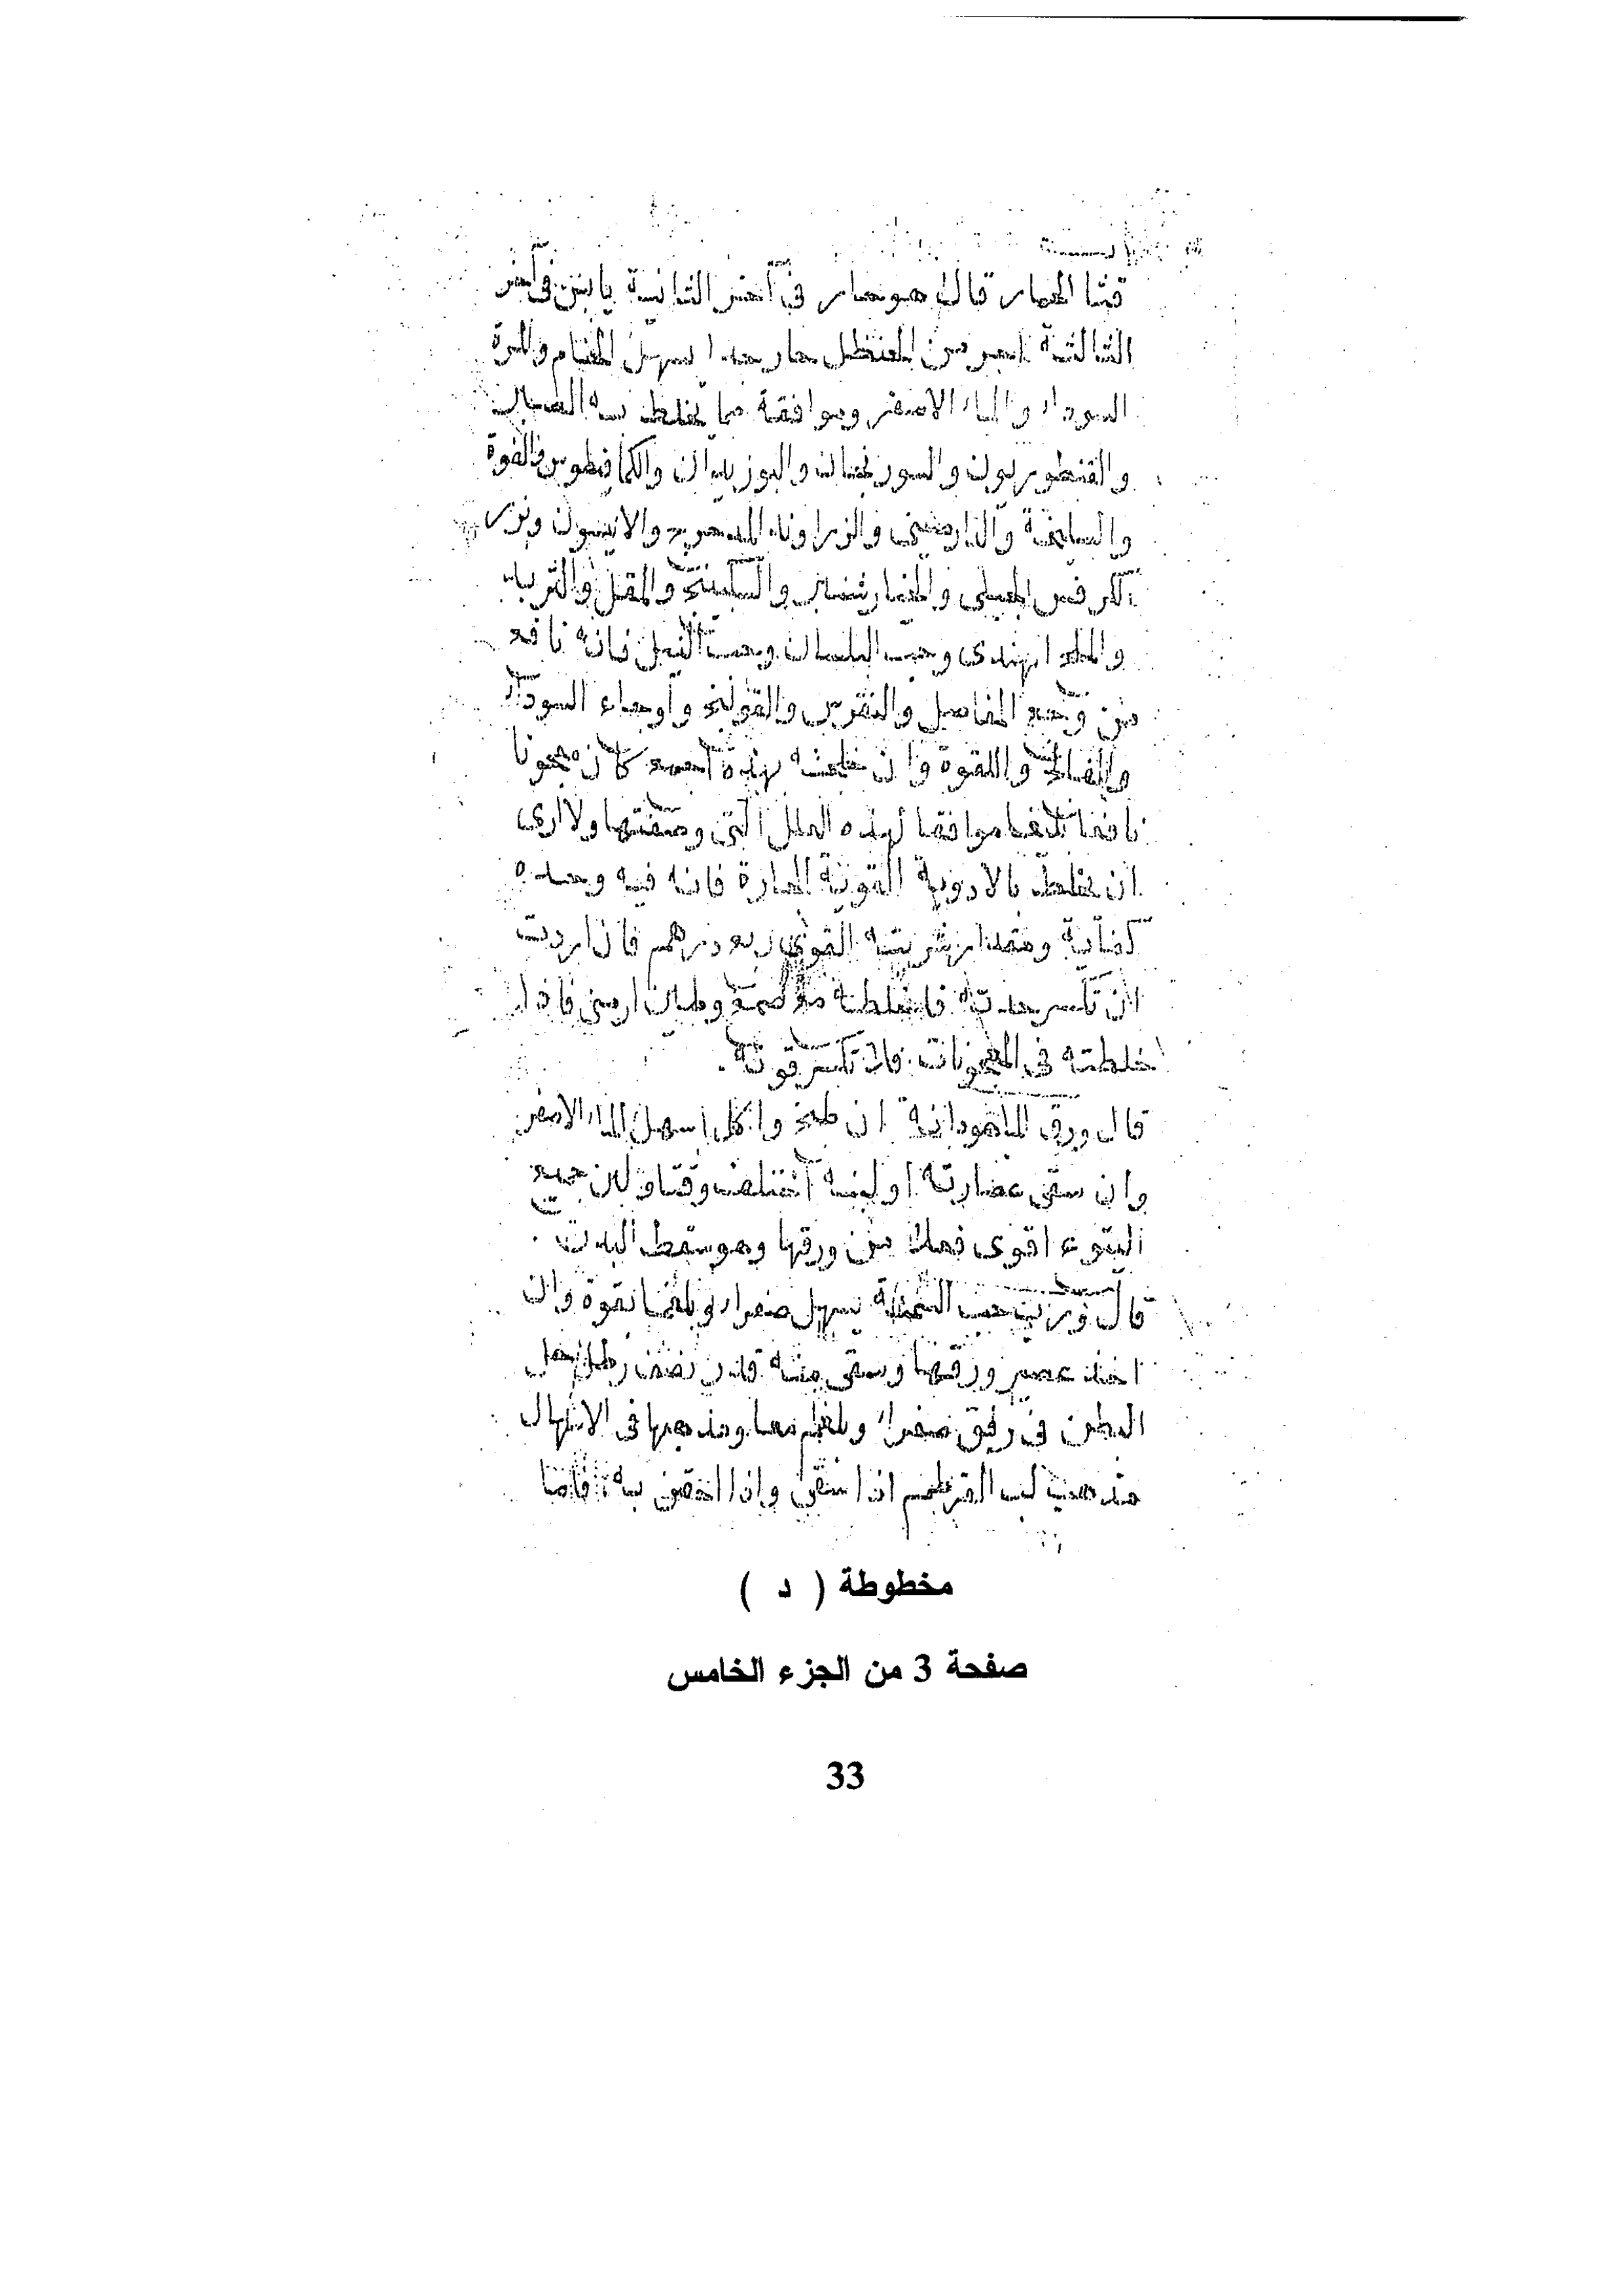 قثا الحمار قال هو حار في آخر الثانية يابس في آخر
الثالثة من الحنظل حار جدا يسهل البلغم والمرة
السوداء والماء الاصفر وموافقة ما يخلط به الصبر
والقنطوريون والسورنجان والبوزيدان والكمافيطوس والفوة
والسليخة والدارصيني والزراوند المدحرج والانيسون وبزر
الكرفس الجبلي والجاوشير والسكبينج والمقل والتربد
والملح الهندي وحب البلسان وحب النيل فانه نافع
من وجع المفاصل والنقرس والقولنج وأوجاع السوداء
والفالج واللقوة وان خلطته بهذه أجمع كان معجونا
نافعا موافقا لهذه العلل التي وصفتها ولا ارى
ان يخلط بالادوية القوية الحارة فانه فيه وحده
كفاية ومقدار شربته القوي ربع درهم فان اردت
ان تكسر حدته فاخلطه وطين ارمني فاذا
خلطته في المعجونات فلا تكسر قوته.
قال ورق الماهودانة ان طبخ واكل اسهل الماء الاصفر
وان سقي عصارته او لبنه اختلف وقتا ولبن جميع
اليتوع اقوى فعلا من ورقها وهو يسقط البدن.
قال وزيت حب يسهل صفراء وبلغما بقوة وان
اخذ عصير ورقها وسقي منه قدر نصف رطل اسهل
البطن في رفق صفراء وبلغم معا ومذهبها في الاسهال
مذهب لب القرطم اذا سقي واذا احتقن به فأما
مخطوطة ( د )
صفحة 3 من الجزء الخامس
33